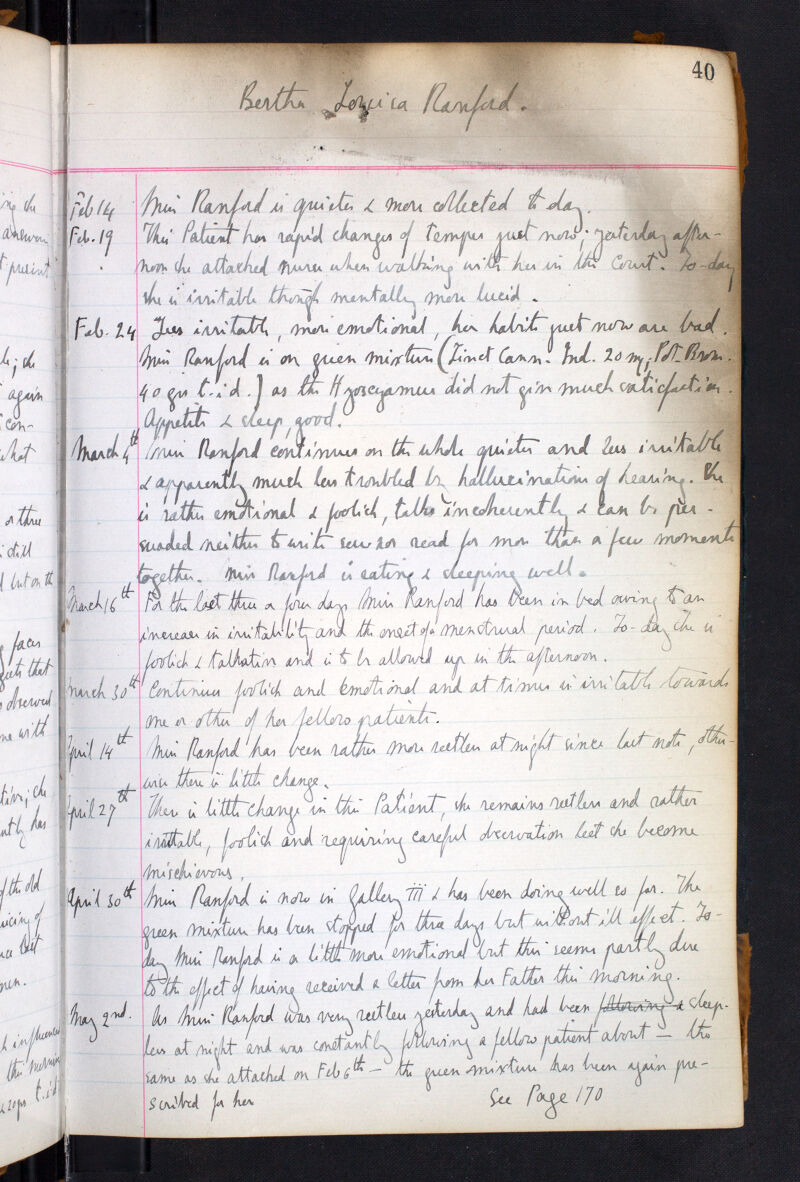 40
Bertha Louisa Ranford.
Feb 14 Miss Ranford is quieter & more collected to day.
Feb. 19 This Patient has rapid changes of temper just now; yesterday after-
noon she attacked nurse when walking with her in the Court. To-day
she is irritable though mentally more lucid.
Feb. 24 Less irritable, more emotional, her habits just now are bad.
Miss Ranford is on green mixture (Tinct Cann. Ind. 20 m; Pot. Brom.
40 grs t.i.d.) as the Hyoscyamus did not give much satisfaction.
Appetite & sleep, good.
March 4th Miss Ranford continues on the whole quieter and less irritable
& apparently much less troubled by hallucinations of hearing. She
is rather emotional & foolish, talks incoherently & can be per-
suaded neither to write sew nor read for more than a few moments
together. Miss Ranford is eating & sleeping well.
March 16th For the last three or four days Miss Ranford has been in bed owing to an
increase in irritability and the onset of a menstrual period. To-day she is
foolish & talkative and is to be allowed up in the afternoon.
March 30th Continues foolish and emotional and at times is irritable towards
one or other of her fellow patients.
April 14th Miss Ranford has been rather more restless at night since last note, other-
wise there is little change.
April 27th There is little change in this Patient, she remains restless and rather
irritable, foolish and requiring careful observation lest she become
mischievous.
April 30th Miss Ranford is now in Gallery III & has been doing well so far. The
green mixture has been stopped for three days but without ill effect. To-
day Miss Ranford is a little more emotional but this seems partly due
to the effect of having received a letter from her Father this morning.
May 2nd. As Miss Ranford was very restless yesterday and had been following a sleep-
less at night and was constantly following a fellow patient about – the
same as she attacked on Feb 6th – the green mixture has been again pre-
scribed for her
See Page 170